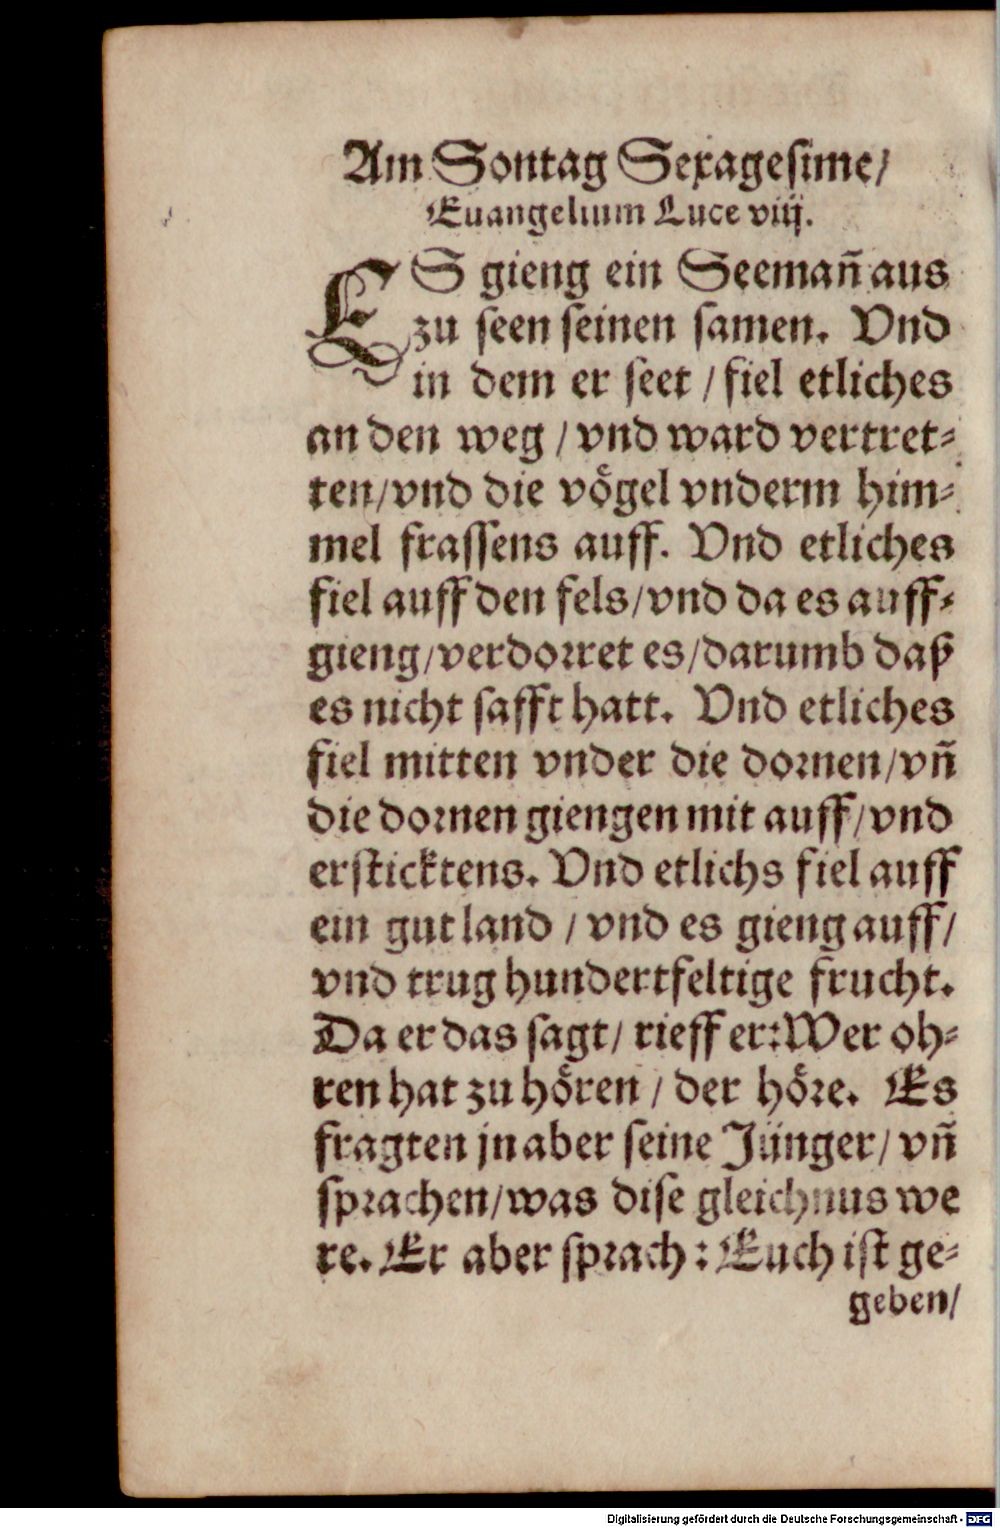 Am Sontag Sexagesime/
Euangelium Luce viij.
ES gieng ein Seemañ aus
zu seen seinen samen. Vnd
in dem er seet / fiel etliches
an den weg / vnd ward vertret⸗
ten/vnd die vögel vnderm him⸗
mel frassens auff. Vnd etliches
fiel auff den fels/vnd da es auff⸗
gieng/verdorret es/darumb daß
es nicht safft hatt. Vnd etliches
fiel mitten vnder die dornen/vñ
die dornen giengen mit auff/vnd
ersticktens. Vnd etlichs fiel auff
ein gut land / vnd es gieng auff/
vnd trug hundertfeltige frucht.
Da er das sagt/ rieff er:Wer oh⸗
ren hat zu hören / der höre. Es
fragten jn aber seine Jünger/ vñ
sprachen/was dise gleichnus we
re. Er aber sprach : Euch ist ge⸗
geben/
Digitalisierung gefördert durch die Deutsche Forschungsgemeinschaft - DFG